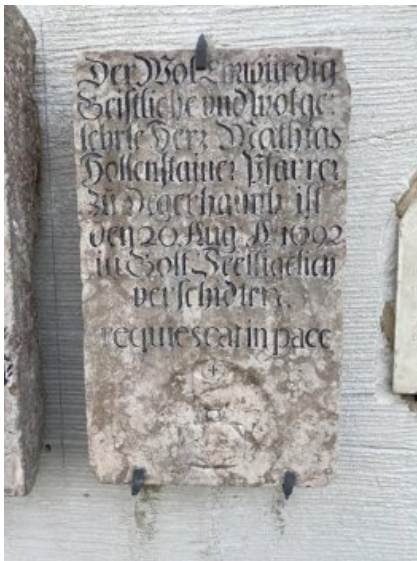 Der Wol Erwürdig
Geistliche vnd wolge=
lehrte Herr Mathias
Hollenstainer Pfarrer
zu Degerhaupt ist
den 20 Aug A 1692
in Gott Seelligelich
verschidten.
requiescat in pace